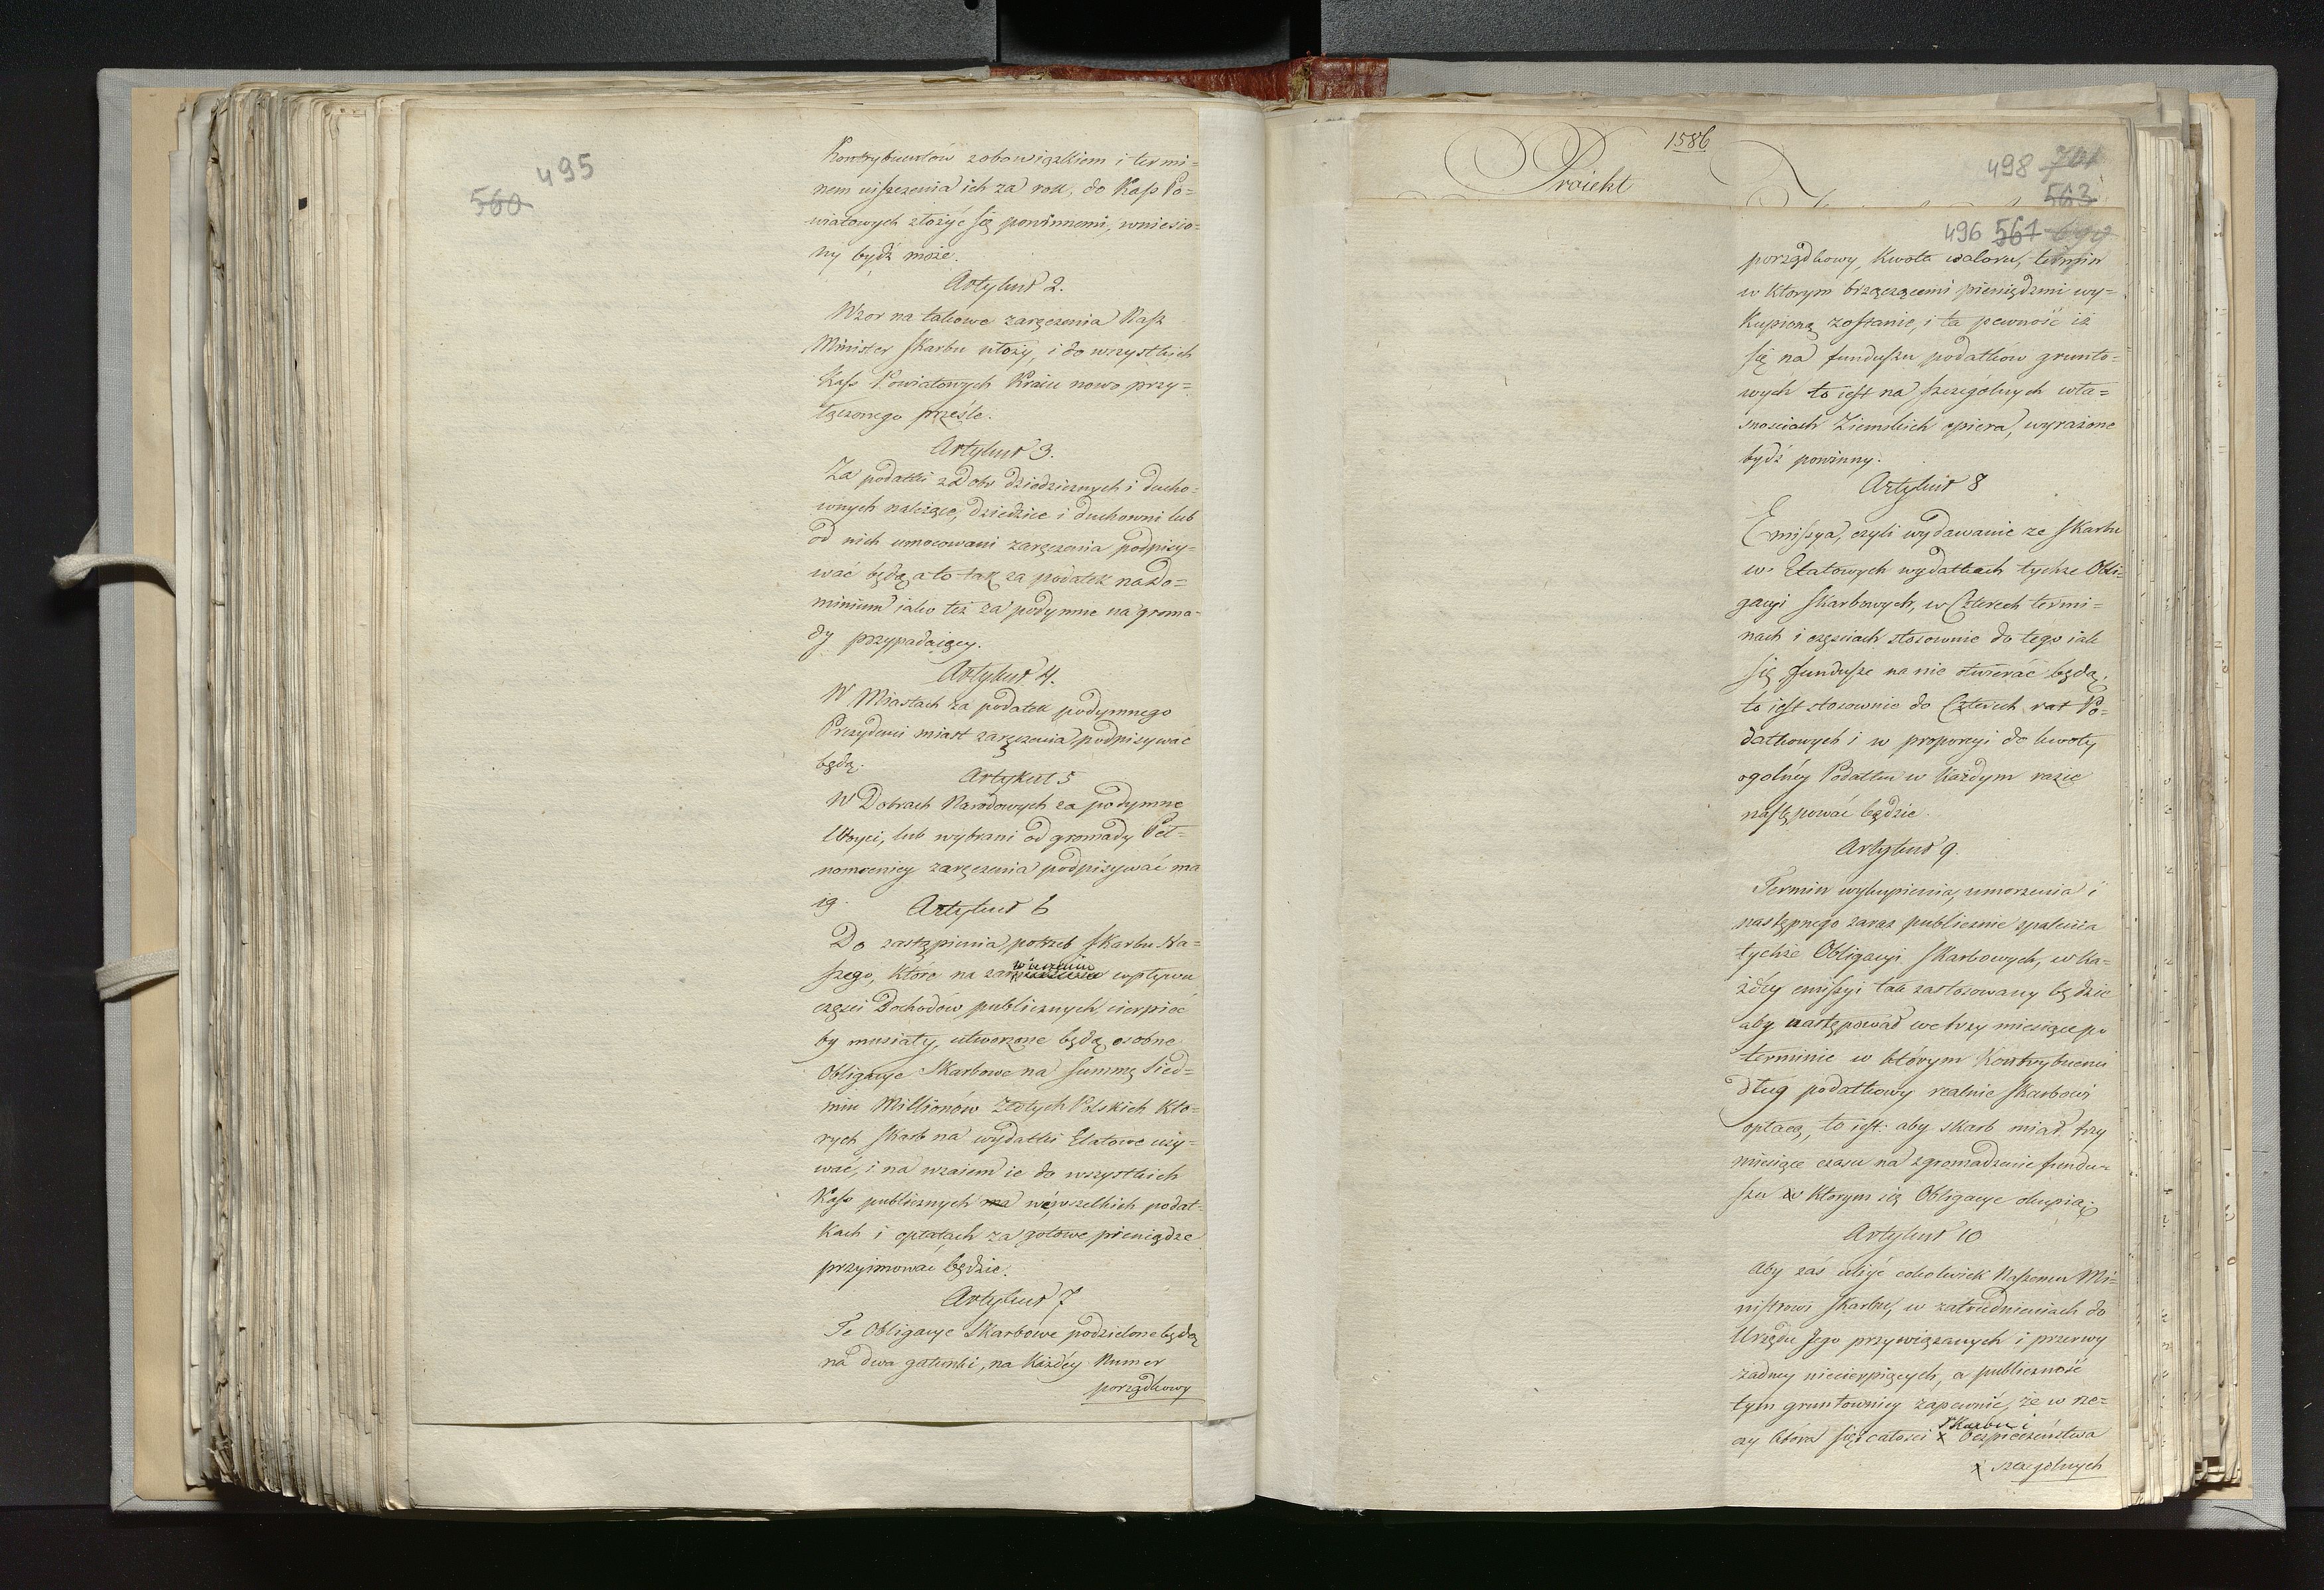 495
560
Kontrybuentów zobowiązkiem i termi=
nem uiszczenia ich za rok, do Kass Po=
wiatowych złożyć się powinnemi, wniesio=
ny bydź może.
Artykuł 2.
Wzor na takowe zaręczenia Nasz
Minister Skarbu ułoży, i do wszystkich
Kass Powiatowych Kraiu nowo przy=
łączonego prześle.
Artykuł 3.
Za podatki z dobr dziedzicznych i ducho=
wnych należące, dziedzice i duchowni lub
od nich umocowani zaręczenia podpisy=
wać będą, a to tak za podatek na Do=
minium iako też za podymne na groma=
dy przypadaiący.
Artykuł 4.
W Miastach za podatek podymnego
Prezydenci miast zaręczenia podpisywać
będą.
Artykuł 5
W Dobrach Narodowych za podymne
Woyci, lub wybrani od gromady Peł=
nomocnicy zaręczenia podpisywać ma
ią.
Artykuł 6
Do zastąpienia potrzeb Skarbu Na=
szego, które na zawieszeniu wpływu
części Dochodów publicznych, cierpieć
by musiały, utworzone będą osobne
Obligacye Skarbowe na Summę Sied=
miu Millionów Złotych Polskich kto=
rych Skarb na wydatki Etatowe uży=
wać, i na wzaiem ie do wszystkich
Kass publicznych na wewszelkich podat=
kach i opłatach za gotowe pieniądze
przyimować będzie.
Artykuł 7
Te Obligacye Skarbowe podzielone będą
na dwa gatunki, na każdey Numer
porządkowy
1586
Proiekt
498 701
563
496 561
porządkowy, kwota waloru, termin
w ktorym brzęczącemi pieniędzmi wy=
kupioną zostanie, i ta pewność iż
się na funduszu podatków grunto=
wych to iest na szczególnych wła=
snościach Ziemskich opiera, wyrażone
bydź powinny.
Artykuł 8
Emissya, czyli wydawanie ze Skarbu
w Etatowych wydatkach tychże Obli=
gacyi Skarbowych, w Czterech termi=
nach i częściach stosownie do tego iak
się fundusze na nie otwierać będą,
to iest stosownie do Czterech rat Po=
datkowych i w proporcyi do kwoty
ogolney Podatku w każdym razie
następować będzie.
Artykuł 9.
Termin wykupienia, umorzenia i
następnego zaraz publicznie spalenia
tychże Obligacyi Skarbowych, w ka=
żdey emissyi tak zastosowany będzie
aby następował we trzy miesiące po
terminie w którym Kontrybuenci
dług podatkowy realnie Skarbowi
opłacą, to iest: aby Skarb miał trzy
miesiące czasu na zgromadzenie fundu=
szu w ktorym się Obligacye okupią.
Artykuł 10
Aby zaś ulżyć cokolwiek Naszemu Mi=
nistrowi Skarbu, w zatrudnieniach do
Urzędu Jego przywiązanych i przerwy
żadney niecierpiących, a publiczność
tym gruntowniey zapewnić, że w rze=
czy która się całości x Skarbu i bezpieczeństwa
x szczególnych